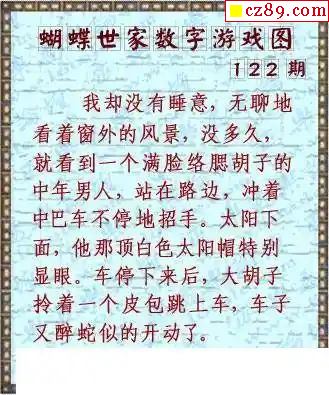 cz89.com
蝴蝶世家数字游戏图
122期
我却没有睡意，无聊地
看着窗外的风景，没多久，
就看到一个满脸络腮胡子的
中年男人，站在路边，冲着
中巴车不停地招手。太阳下
面，他那顶白色太阳帽特别
显眼。车停下来后，大胡子
拎着一个皮包跳上车，车子
又醉蛇似的开动了。